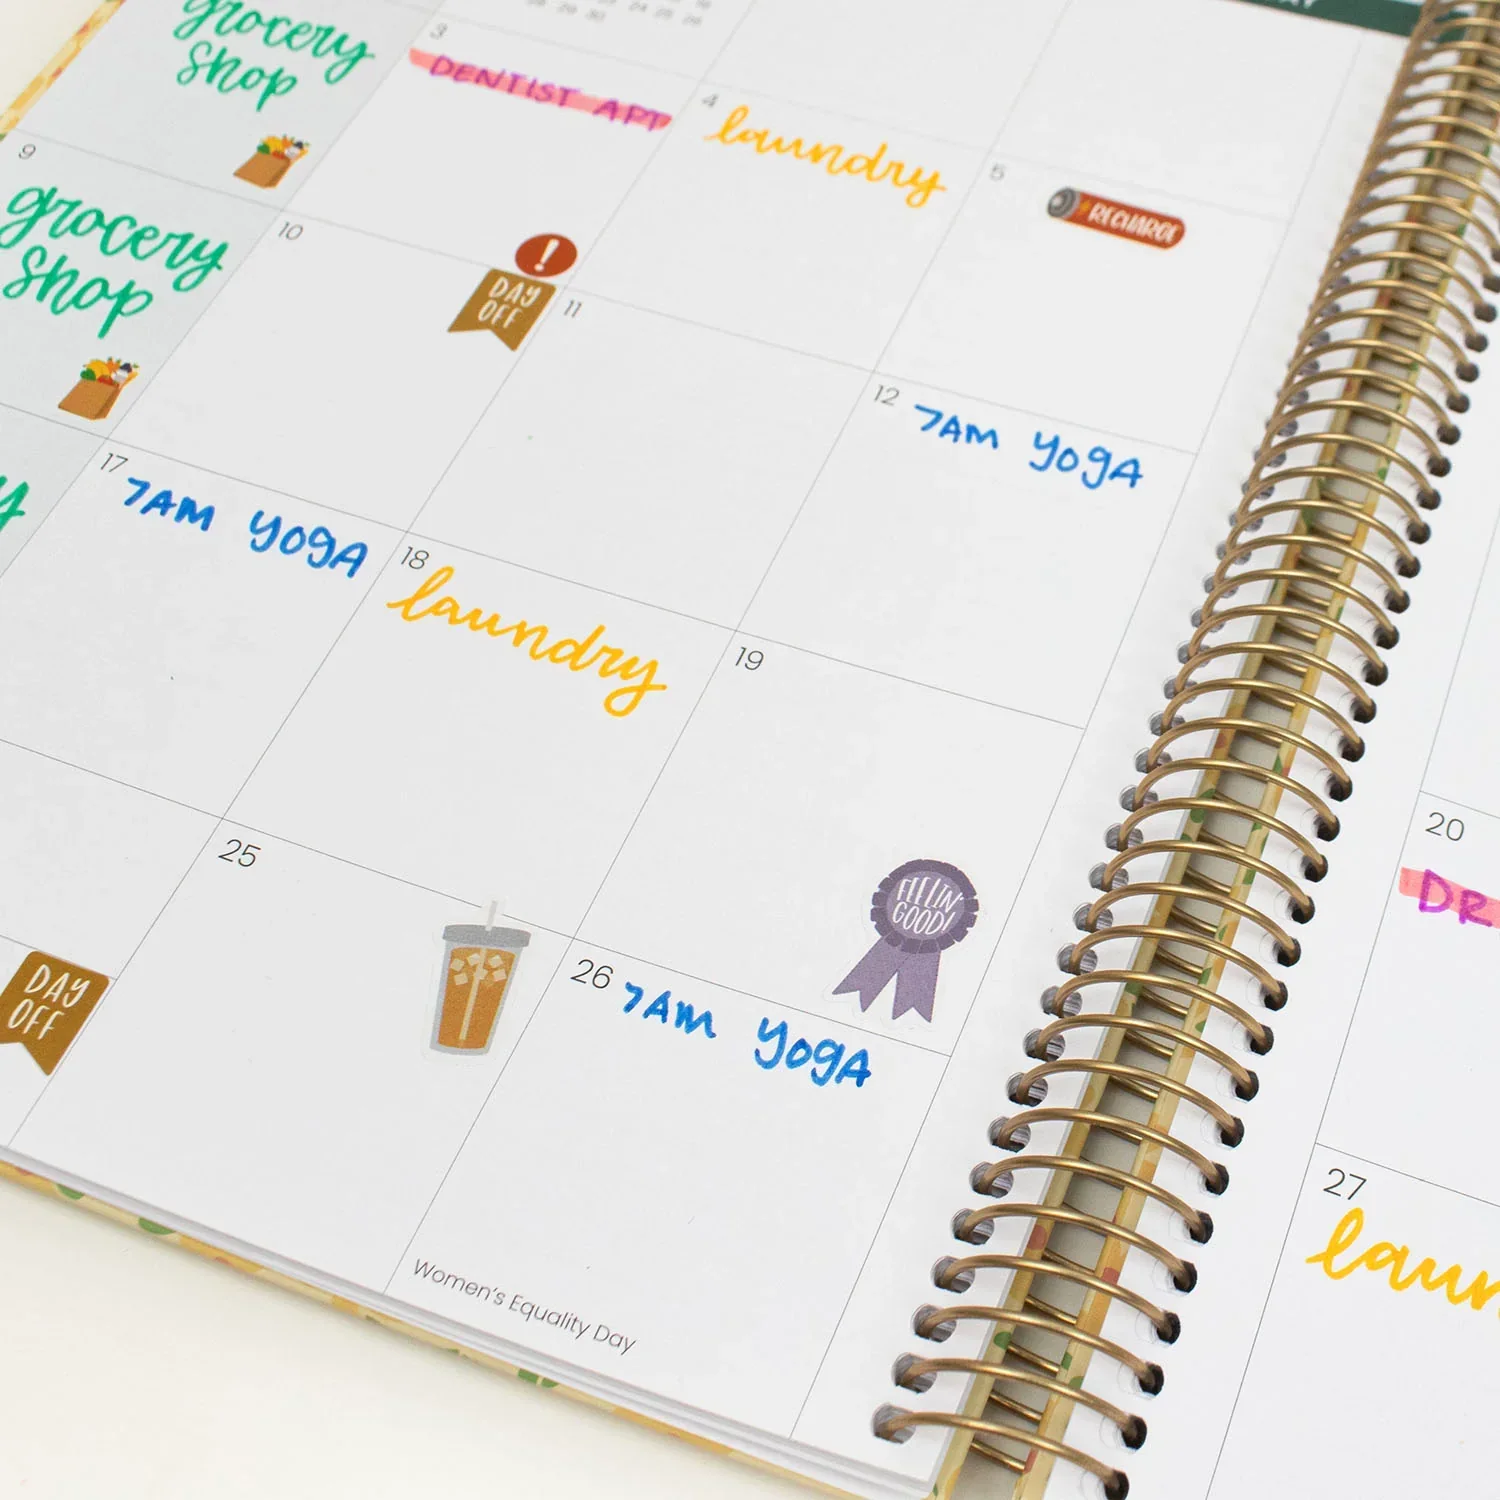 grocery
shop
3
DENTIST APT
4
laundry
5
RECHARGE
9
grocery
shop
10
!
DAY
OFF
11
12
7AM YOGA
17
7AM YOGA
18
laundry
19
FEELIN'
GOOD!
20
DR
DAY
OFF
25
26
7AM YOGA
Women's Equality Day
27
laun